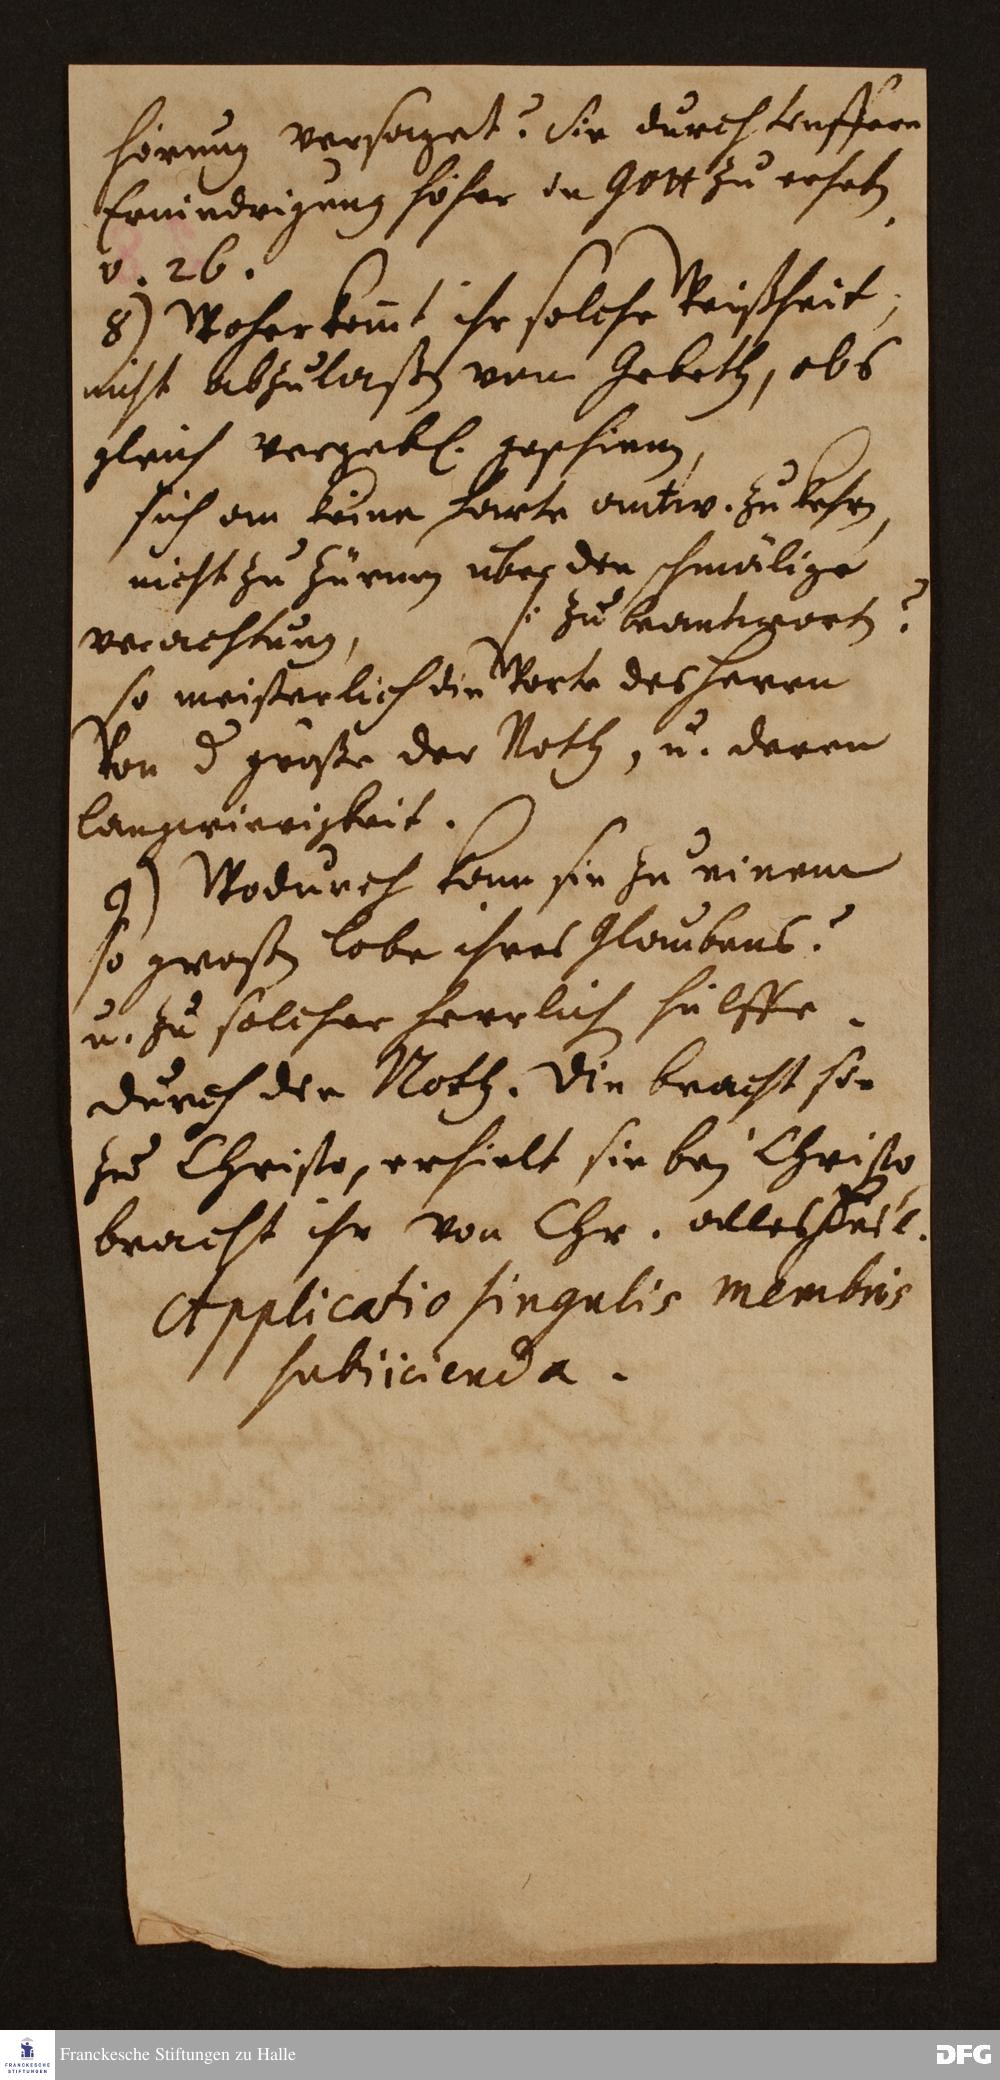 hörung versaget? Sie durch tieffere
Erniedrigung höher in Gott zu erheb.
v. 26.
8) Woher kom̅t ihr solche Weißheit,
nicht abzulaßen vom Gebeth, obs
gleich vergebl. geschienen,
sich an keine harte antw. zu kehren,
nicht zu zürnen über den schmälige
verachtung,
zu beantworten?
so meisterlich die Worte des Herrn
Von d größe der Noth, u. deren
langwierigkeit.
9) Wodurch kam sie zu einem
so großen lobe ihres Glaubens?
u. zu solcher herrlich hülffe.
durch die Noth. Die bracht sie
zu Christo, erhielt sie bei Christo,
bracht ihr von Chr. alles Heil.
Applicatio singulis membris
subiicienda.
Franckesche Stiftungen zu Halle
DFG
FRANCKESCHE
STIFTUNGEN